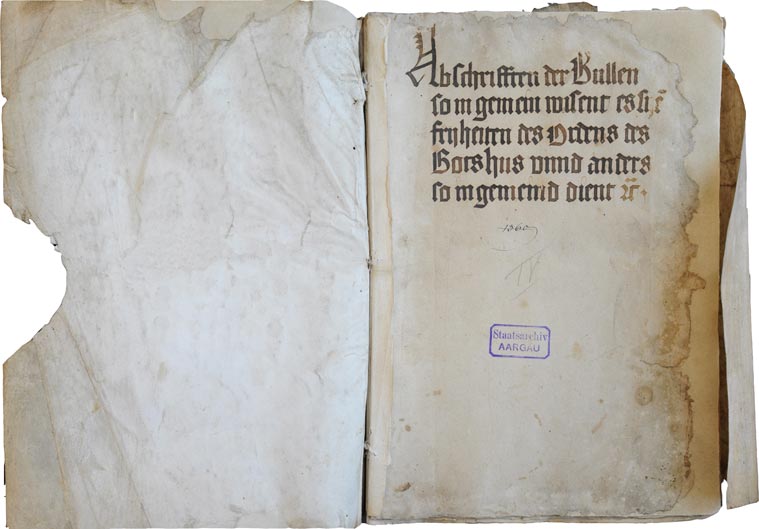 Abschrifften der Bullen
so in gemein wisent es si
fryheiten des Ordens des
Gotshus vnnd anders
so in gemeind dient
1560
IV
Staatsarchiv
AARGAU